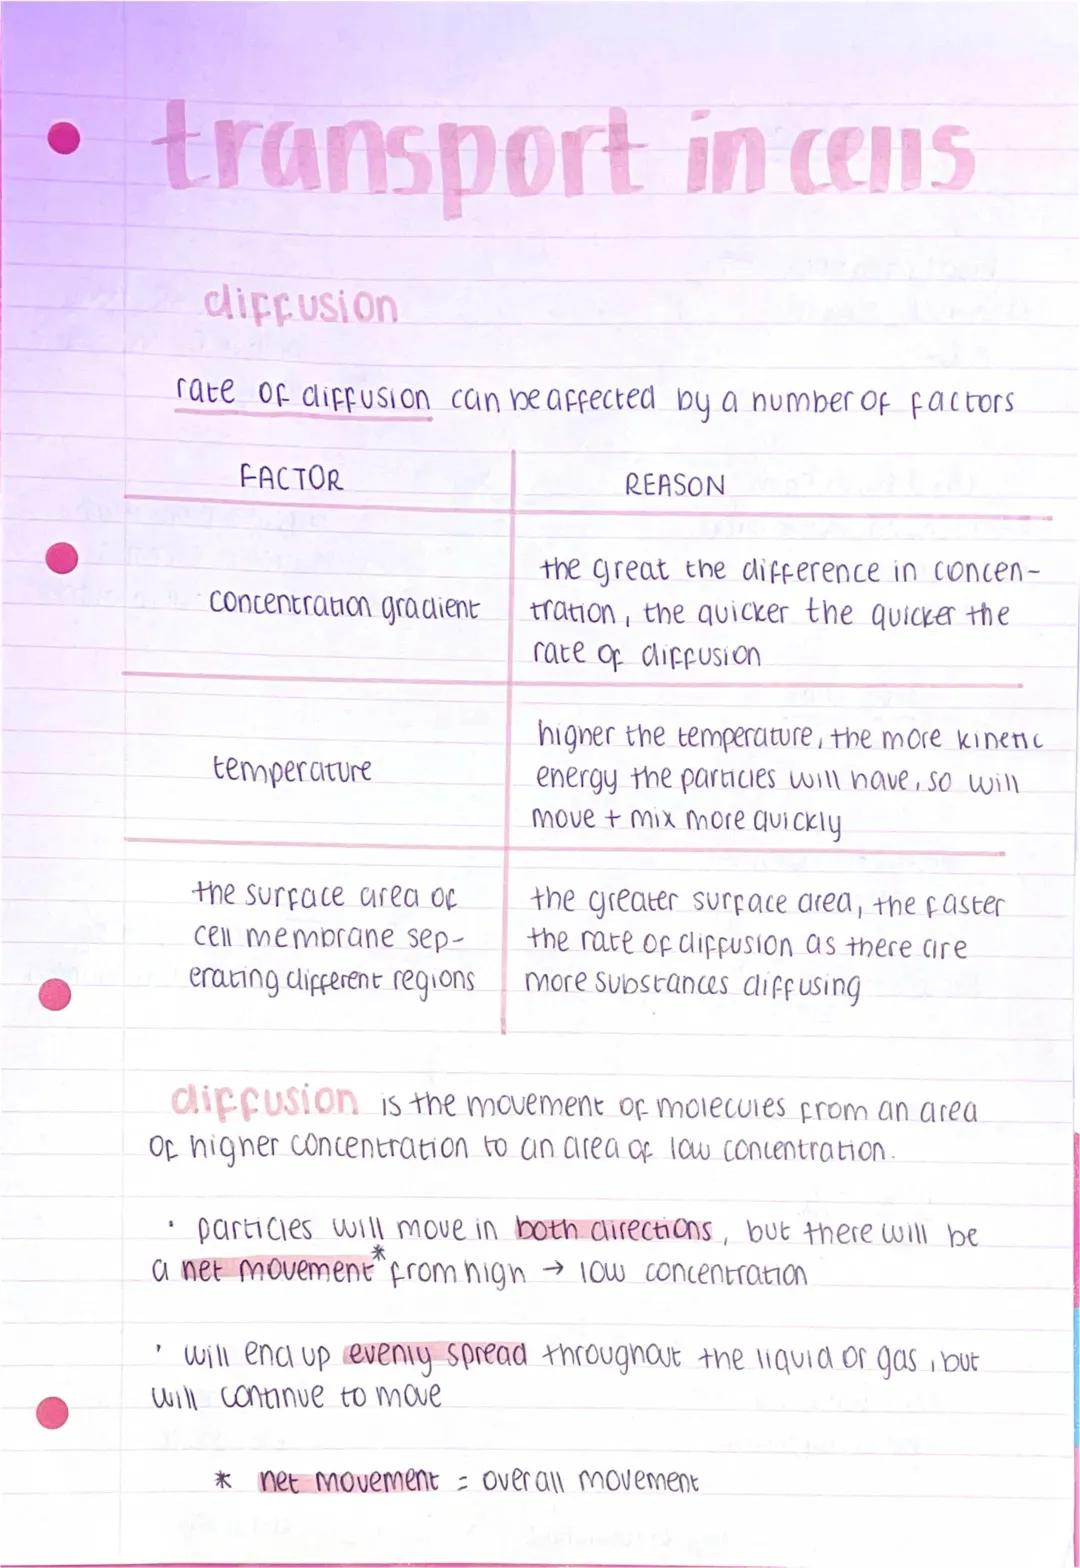 transport in cells
diffusion
rate of diffusion can be affected by a number of factors
FACTOR
REASON
concentration gradient
the great the difference in concen-
tration, the quicker the quicker the
rate of diffusion
temperature
higher the temperature, the more kinetic
energy the particles will have, so will
move + mix more quickly
the surface area of
cell membrane sep-
erating different regions
the greater surface area, the faster
the rate of diffusion as there are
more substances diffusing
diffusion is the movement of molecules from an area
of higher concentration to an area of low concentration.
· particles will move in both directions, but there will be
a net movement* from high → low concentration
· will end up evenly spread throughout the liquid or gas, but
will continue to move
* net movement = overall movement